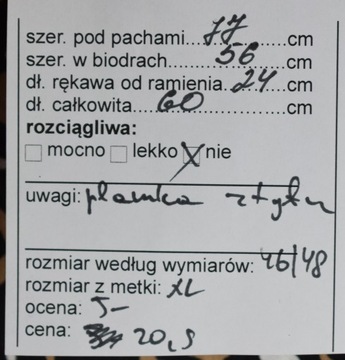 szer. pod pachami...77......cm
szer. w biodrach........56......cm
dł. rękawa od ramienia.24...cm
dł. całkowita....60...............cm
rozciągliwa:
mocno lekko nie
uwagi: plamka z tyłu
rozmiar według wymiarów: 46/48
rozmiar z metki: XL
ocena: 5-
cena: 20,5